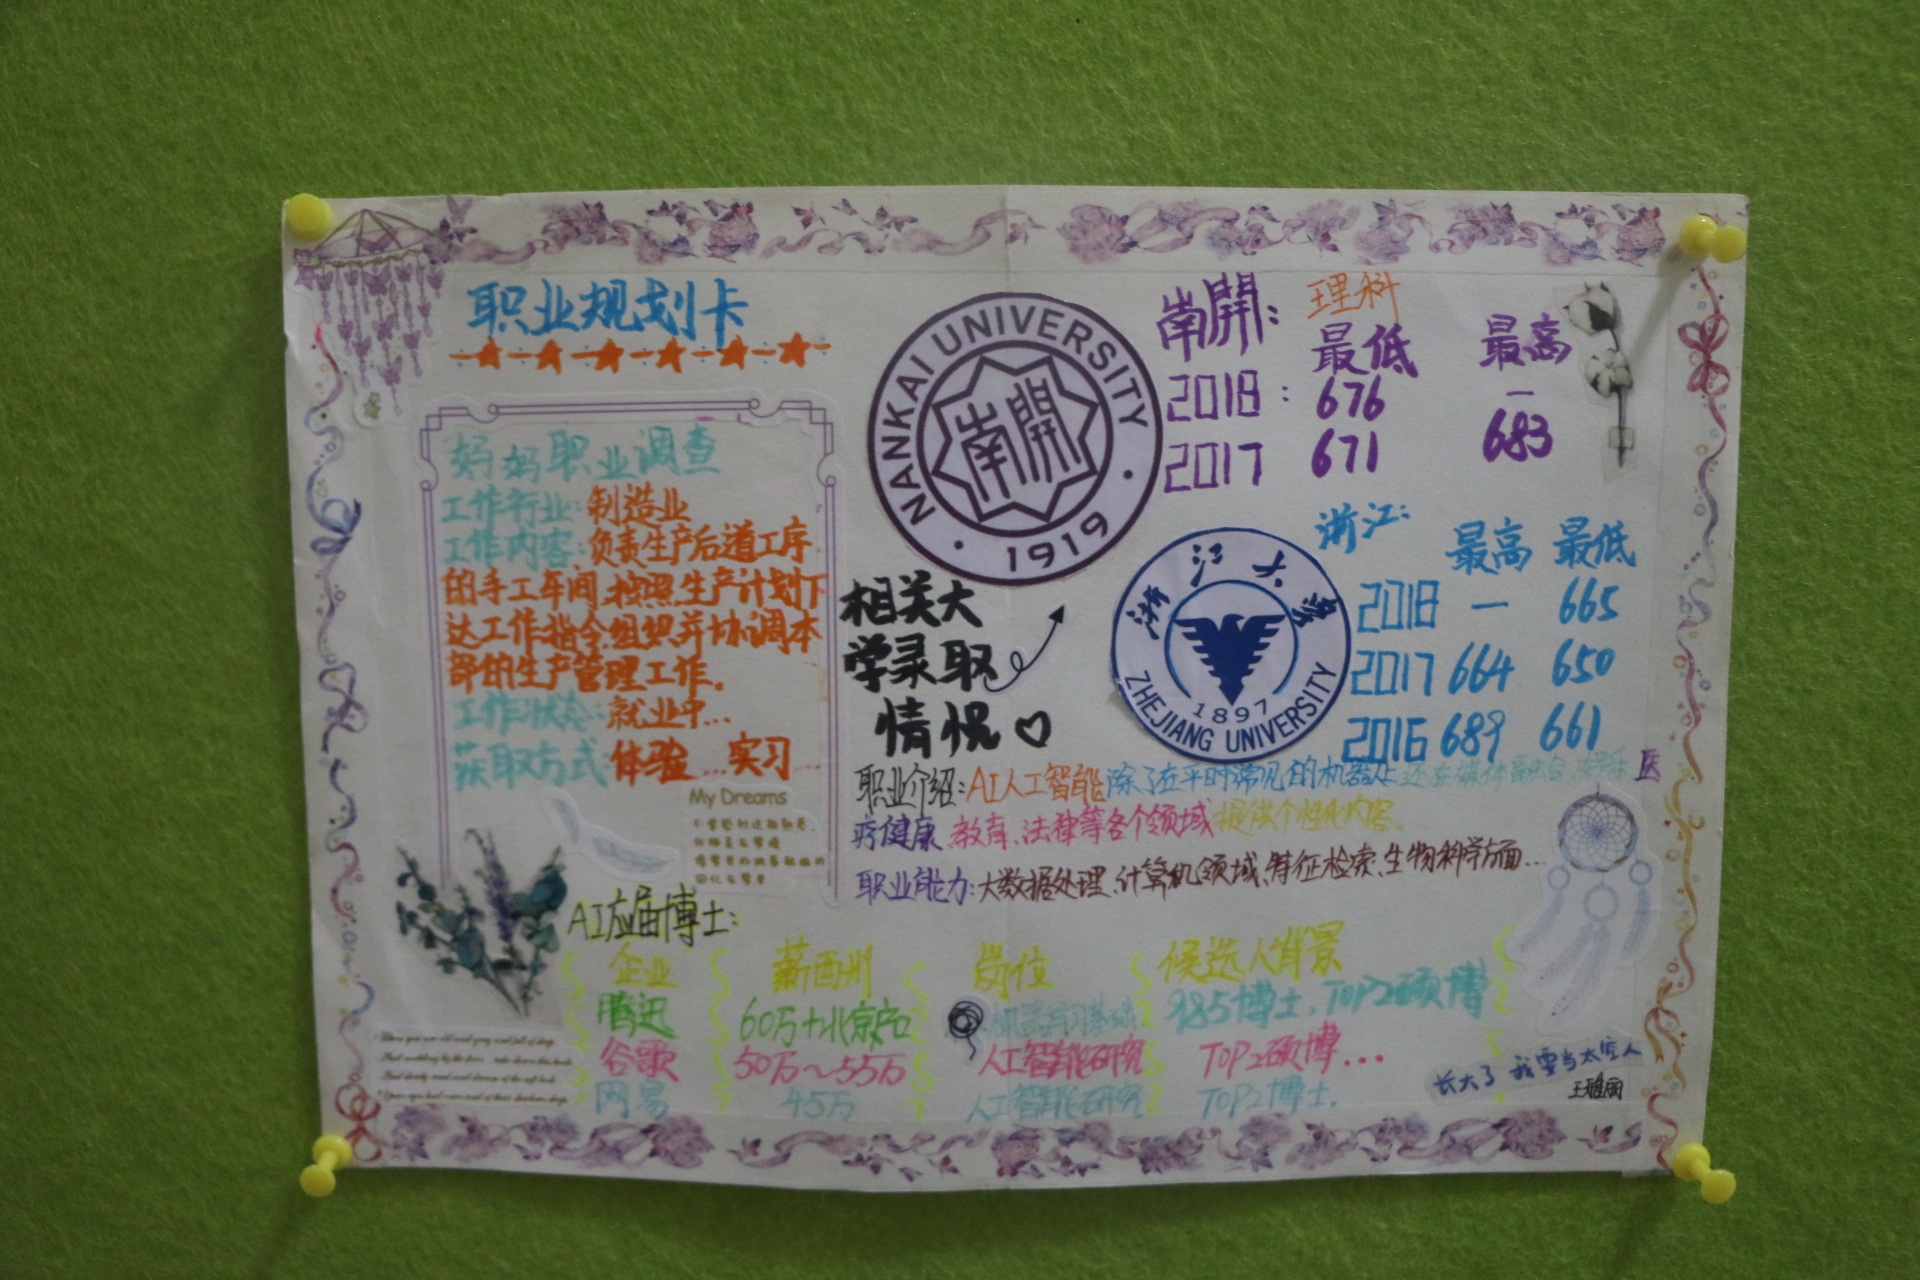 职业规划卡
妈妈职业调查
工作行业:制造业
工作内容:负责生产后道工序
的手工车间.按照生产计划下
达工作指令.组织并协调本
部的生产管理工作。
工作状态:就业中...
获取方式:体验...实习
My Dreams
NANKAI UNIVERSITY
南開
1919
南開: 理科
最低 最高
2018: 676 —
2017 671 683
相关大
学录取
情况♡
浙江大學
1897
ZHEJIANG UNIVERSITY
浙江:
最高 最低
2018 — 665
2017 664 650
2016 689 661
职业介绍:AI人工智能除了在平时常见的机器处,还在媒体 娱乐 医
疗健康、教育、法律等各个领域提供个性化内容。
职业能力:大数据处理、计算机领域、特征检索、生物科学方面...
AI应届博士:
企业 薪西州 岗位 候选人背景
腾迅 60万+北京户口 机器学习基础 985博士、TOP2硕博
谷歌 50万~55万 人工智能研究 TOP2硕博...
网易 45万 人工智能研究 TOP2博士.
长大了 我要当太空人